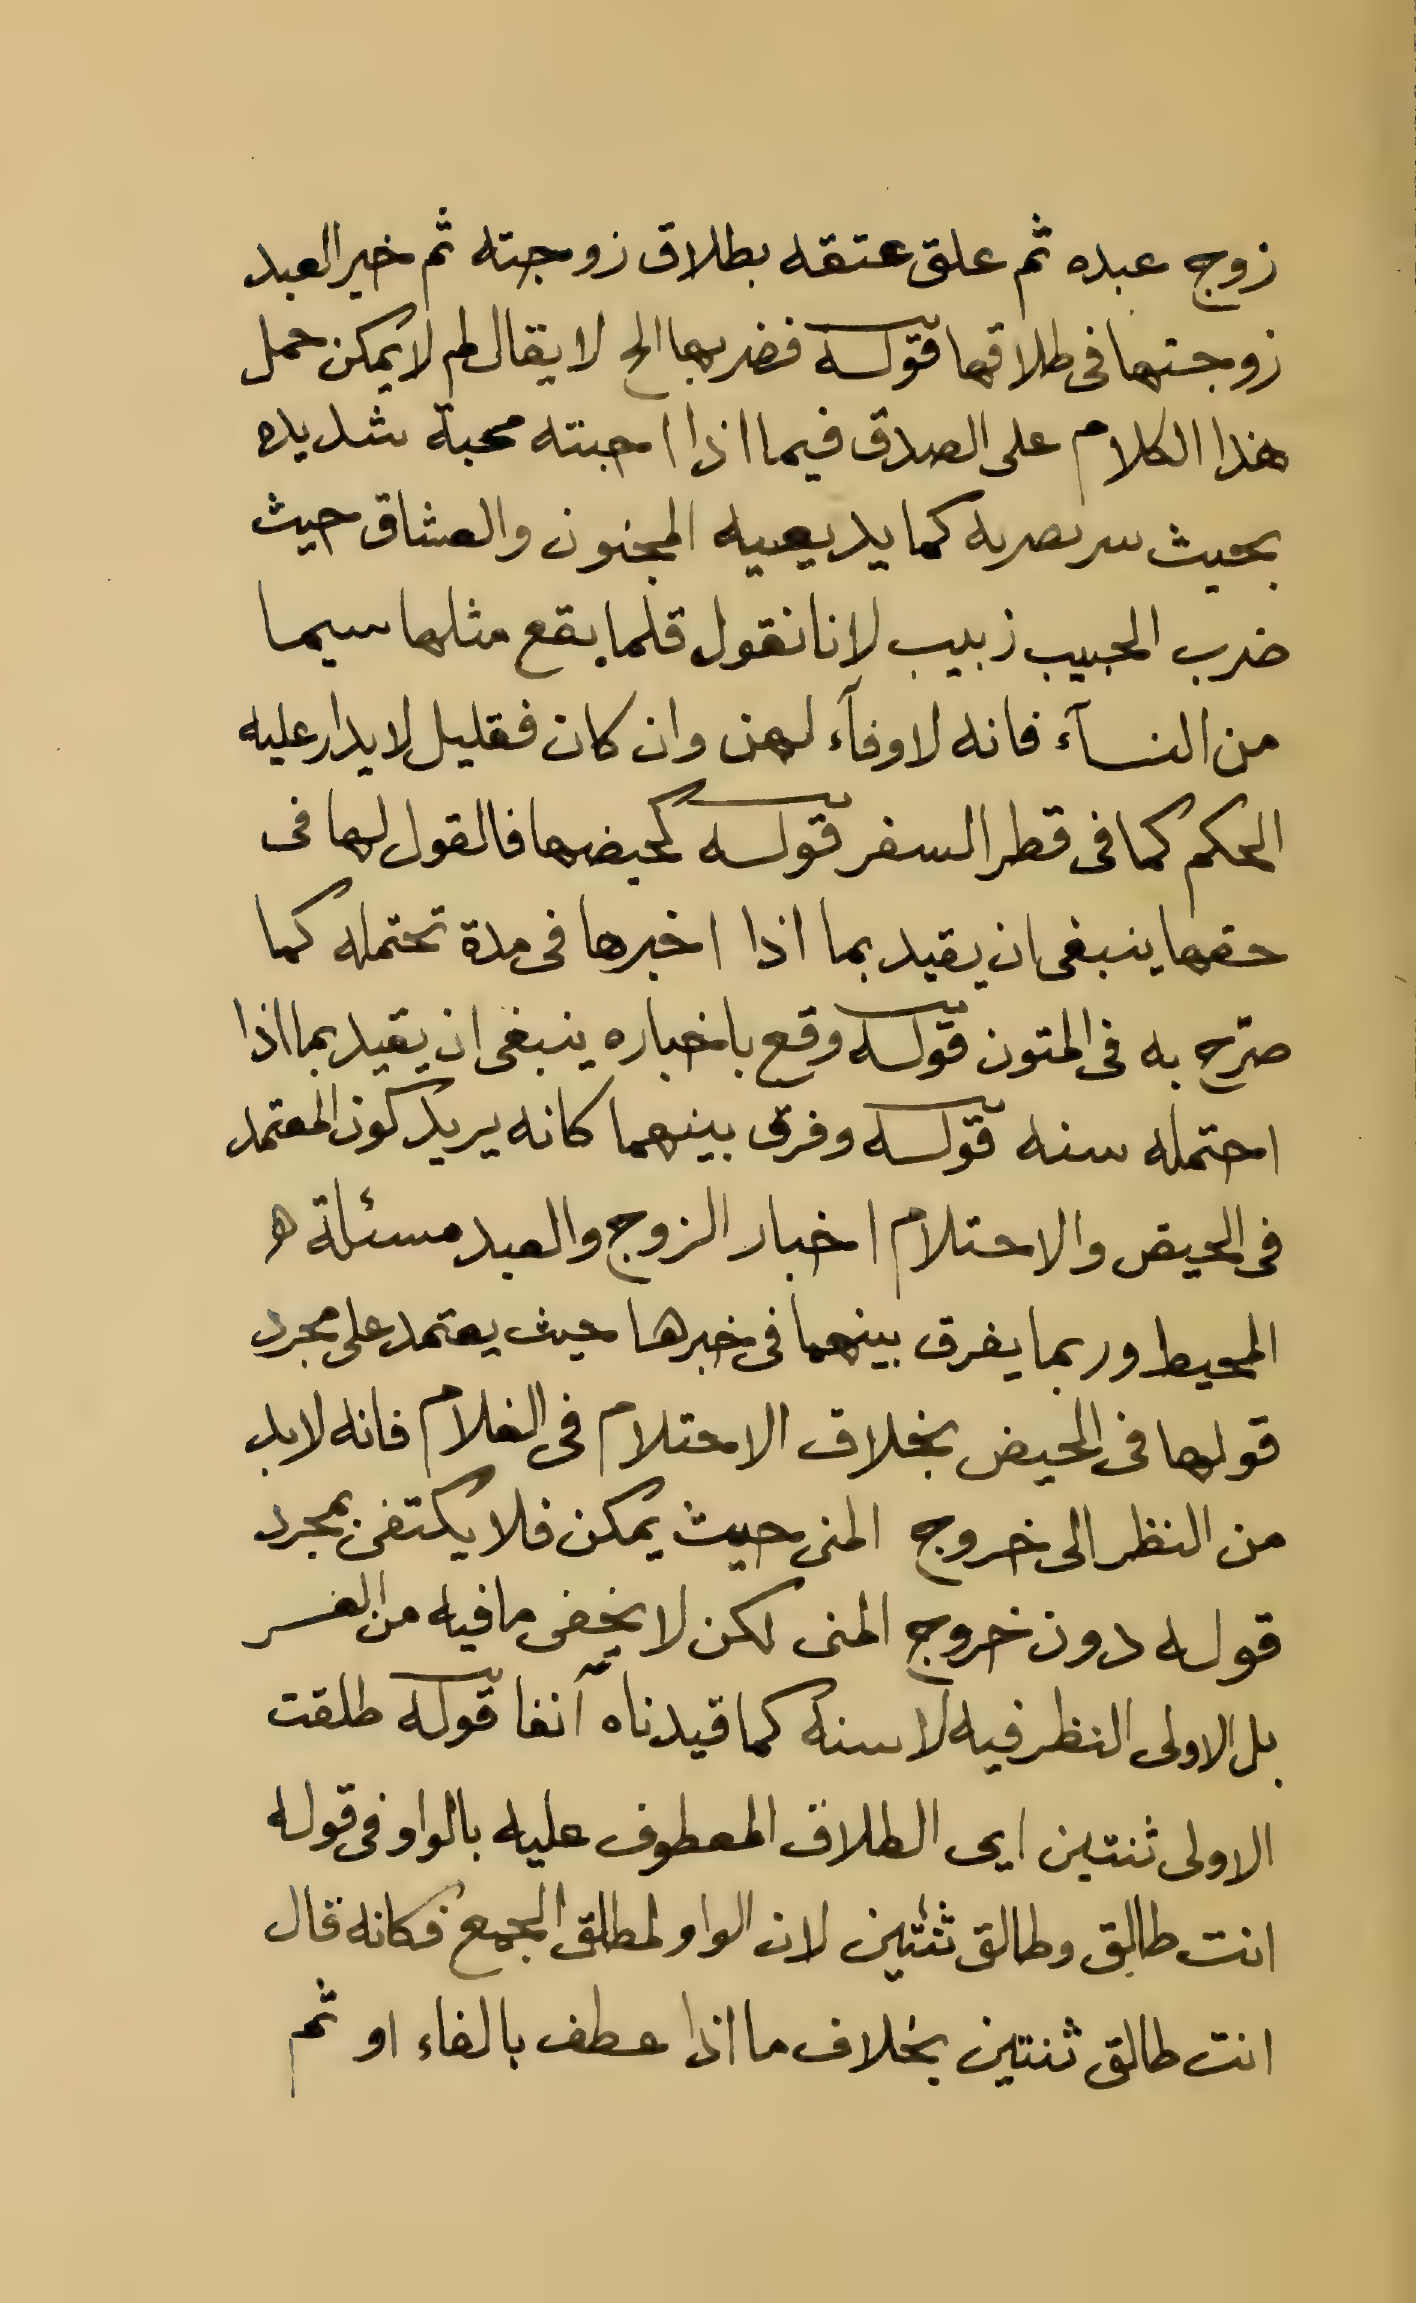 زوج عبده ثم علق عتقه بطلاق زوجته ثم خير العبد
زوجتها فى طلاقها قوله فضربها الخ لا يقال لم لا يمكن حمل
هذا الكلام على الصدق فيما اذا احبته محبة شديده
بحيث سر بضربه كما يديعيه المجنون والعشاق حيث
ضرب الحبيب زبيب لانا نقول قلما يقع مثلها سيما
من النسآء فانه لا وفآء لهن وان كان فقليل لا يدار عليه
الحكم كما فى قطر السفر قوله كحيضها فالقول لها فى
حقها ينبغى ان يقيد بما اذا اخبرها فى مدة تحتمله كما
صرّح به فى المتون قوله وقع باخباره ينبغى ان يقيد بما اذا
احتمله سنه قوله وفرق بينهما كانه يريد كون المعتمد
فى الحيض والاحتلام اخبار الزوج والعبد مسئلة ه
المحيط وربما يفرق بينهما فى خبرها حيث يعتمد على مجرد
قولها فى الحيض بخلاف الاحتلام فى الغلام فانه لابد
من النظر الى خروج المنى حيث يمكن فلا يكتفى بمجرد
قوله دون خروج المنى لكن لا يخفى ما فيه من العسر
بل الاولى النظر فيه لا سنه كما قيدناه آنفا قوله طلقت
الاولى ثنتين اى الطلاق المعطوف عليه بالواو فى قوله
انت طالق وطالق ثنتين لان الواو لمطلق الجمع فكانه قال
انت طالق ثنتين بخلاف ما اذا عطف بالفاء او ثم